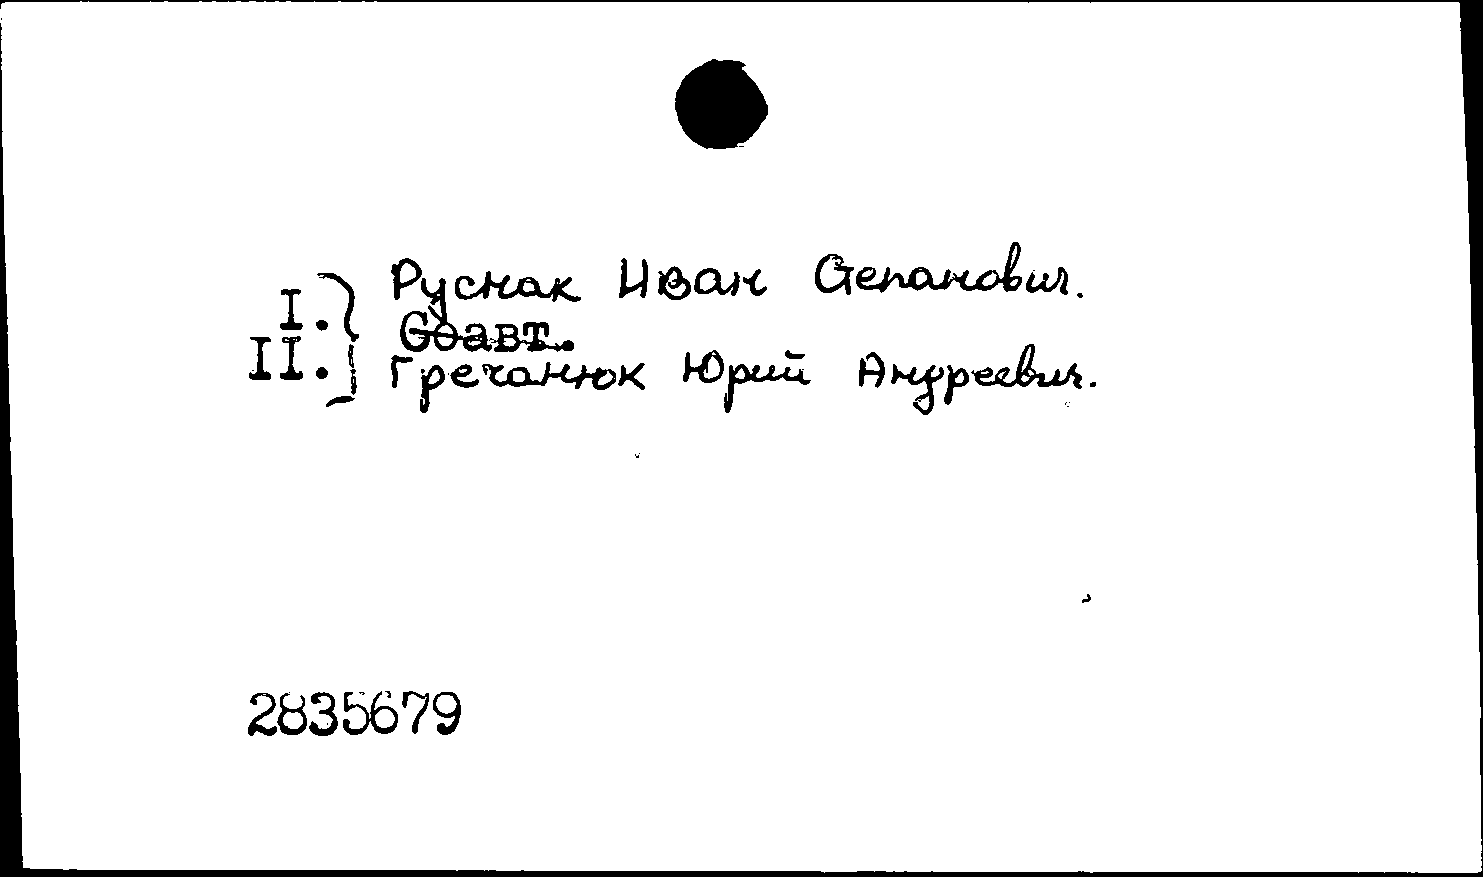 I.} Руснак Иван Степанович.
Соавт.
II.} Гречанюк Юрий Андреевич.
2835679